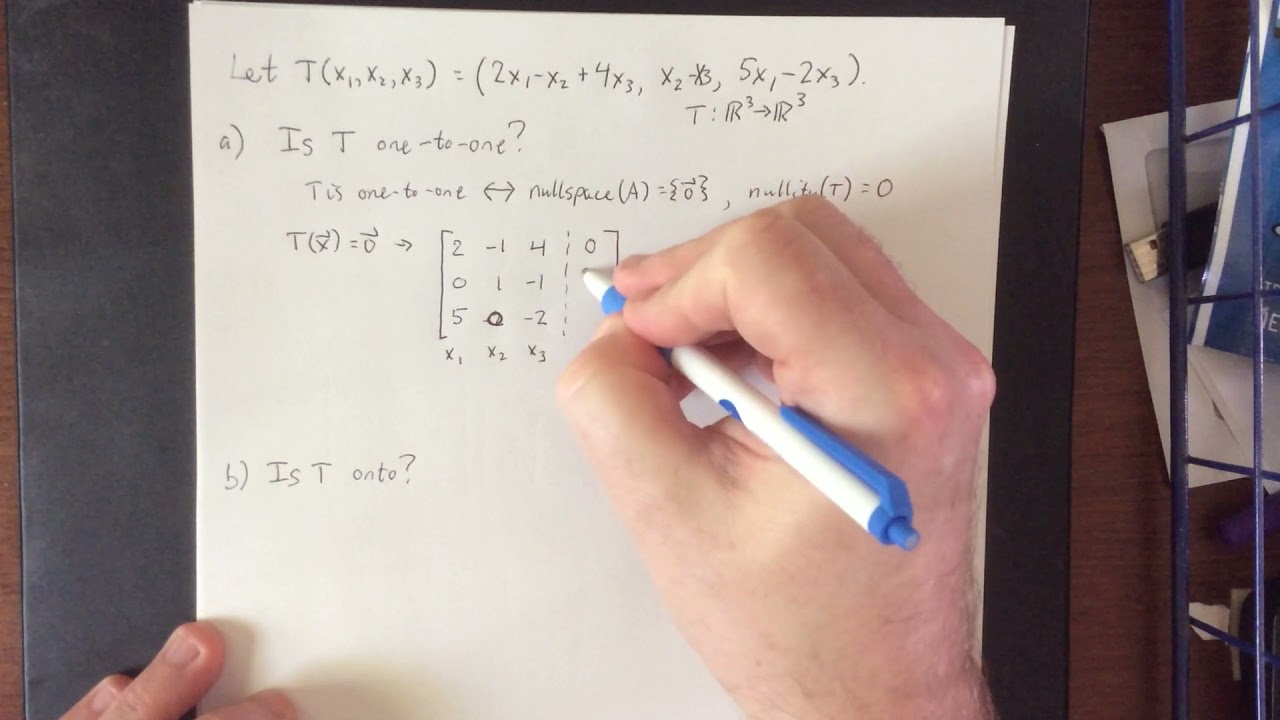 Let T(x₁, x₂, x₃) = (2x₁-x₂ + 4x₃, x₂-x₃, 5x₁-2x₃).
T: ℝ³→ℝ³
a) Is T one-to-one?
T is one-to-one ↔ nullspace(A) = {0⃗}, nullity(T) = 0
T(x⃗) = 0⃗ → [2 -1 4 ¦ 0]
0 1 -1 ¦
5 0 -2 ¦
x₁ x₂ x₃
b) Is T onto?